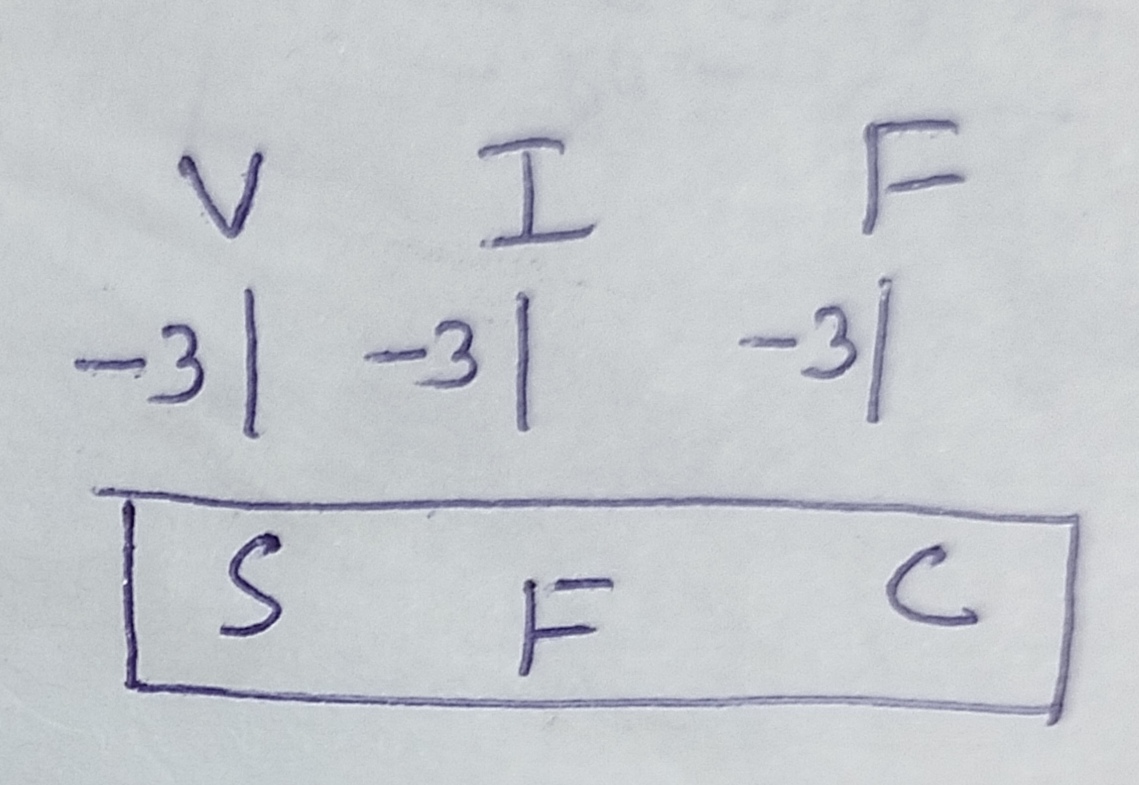 V I F
-3| -3| -3|
S F C